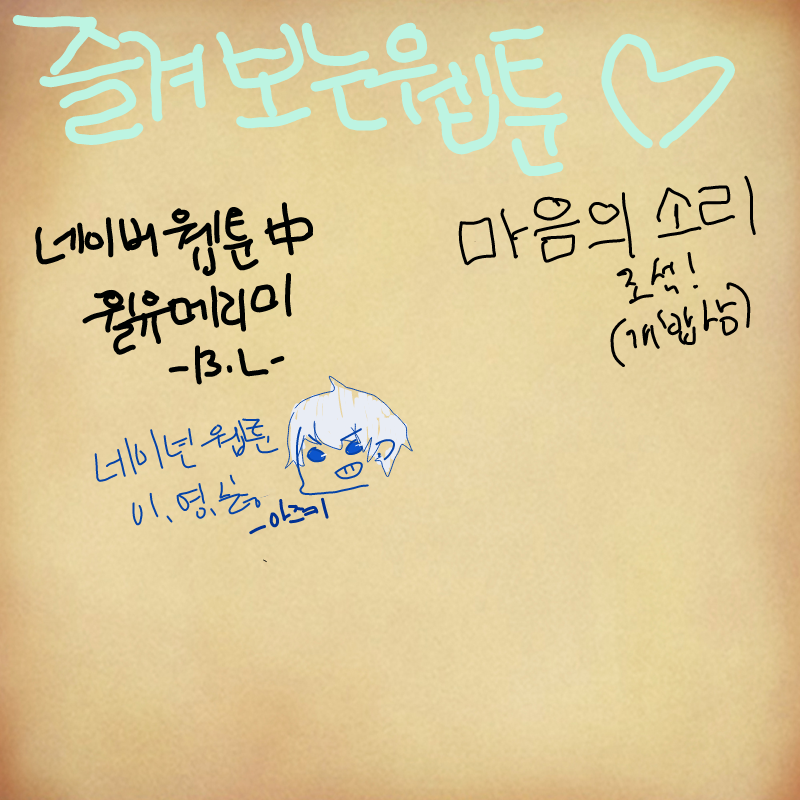 즐겨보는웹툰♡
네이버 웹툰 中
윌유메리미
-B.L-
마음의 소리
조석!
(개그맙상)
네이년 웹툰
이.영.싫.
-아즈키